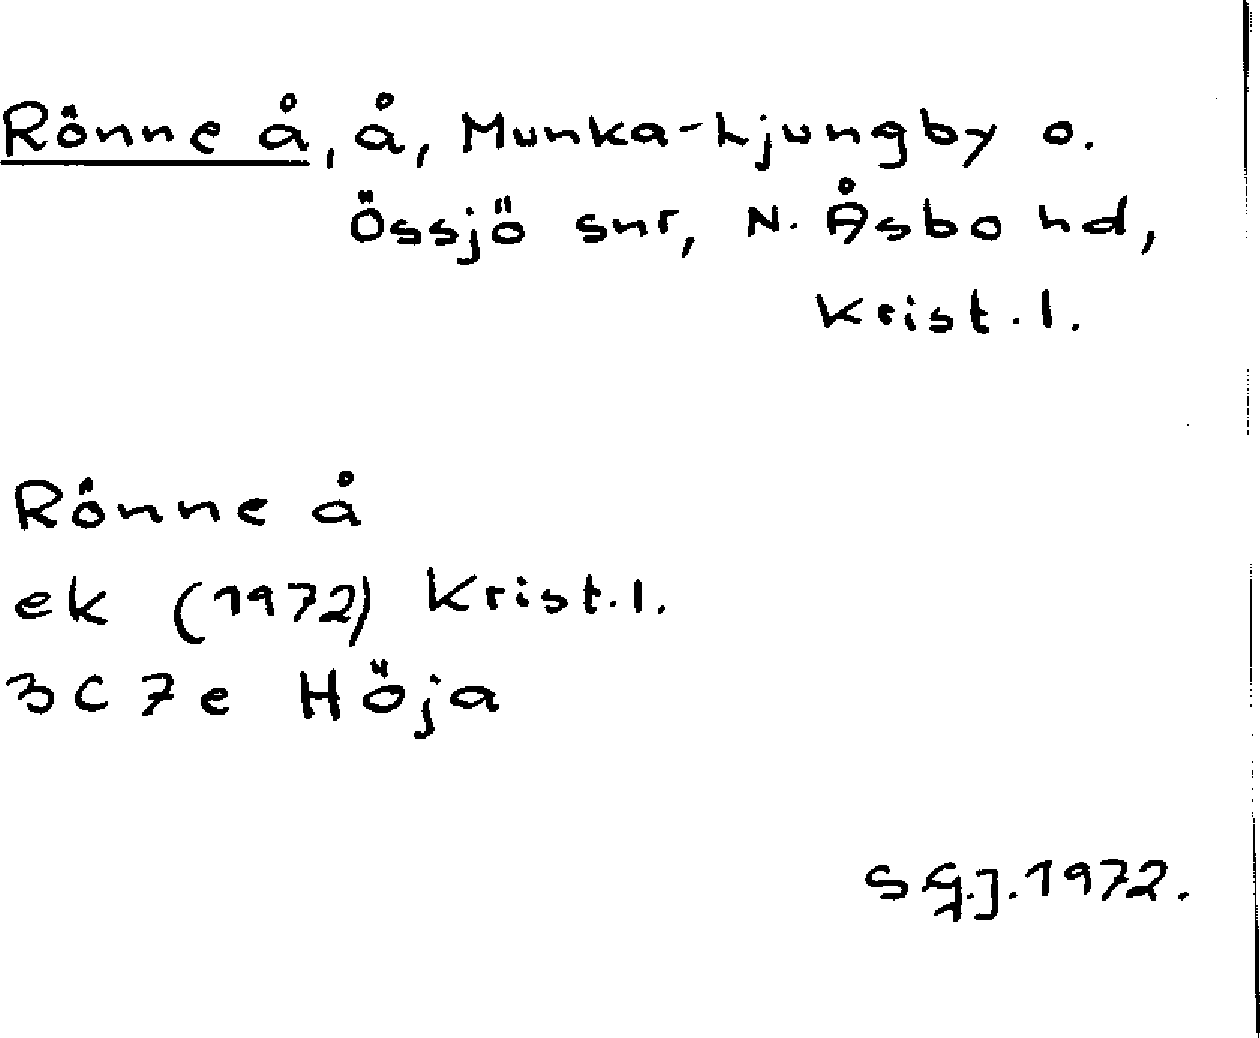 Rönne å, å, Munka-Ljungby o.
Össjö snr, N. Åsbo hd,
Krist. l.
Rönne å
ek (1972) Krist. l.
3C 7e Höja
S.G.J. 1972.